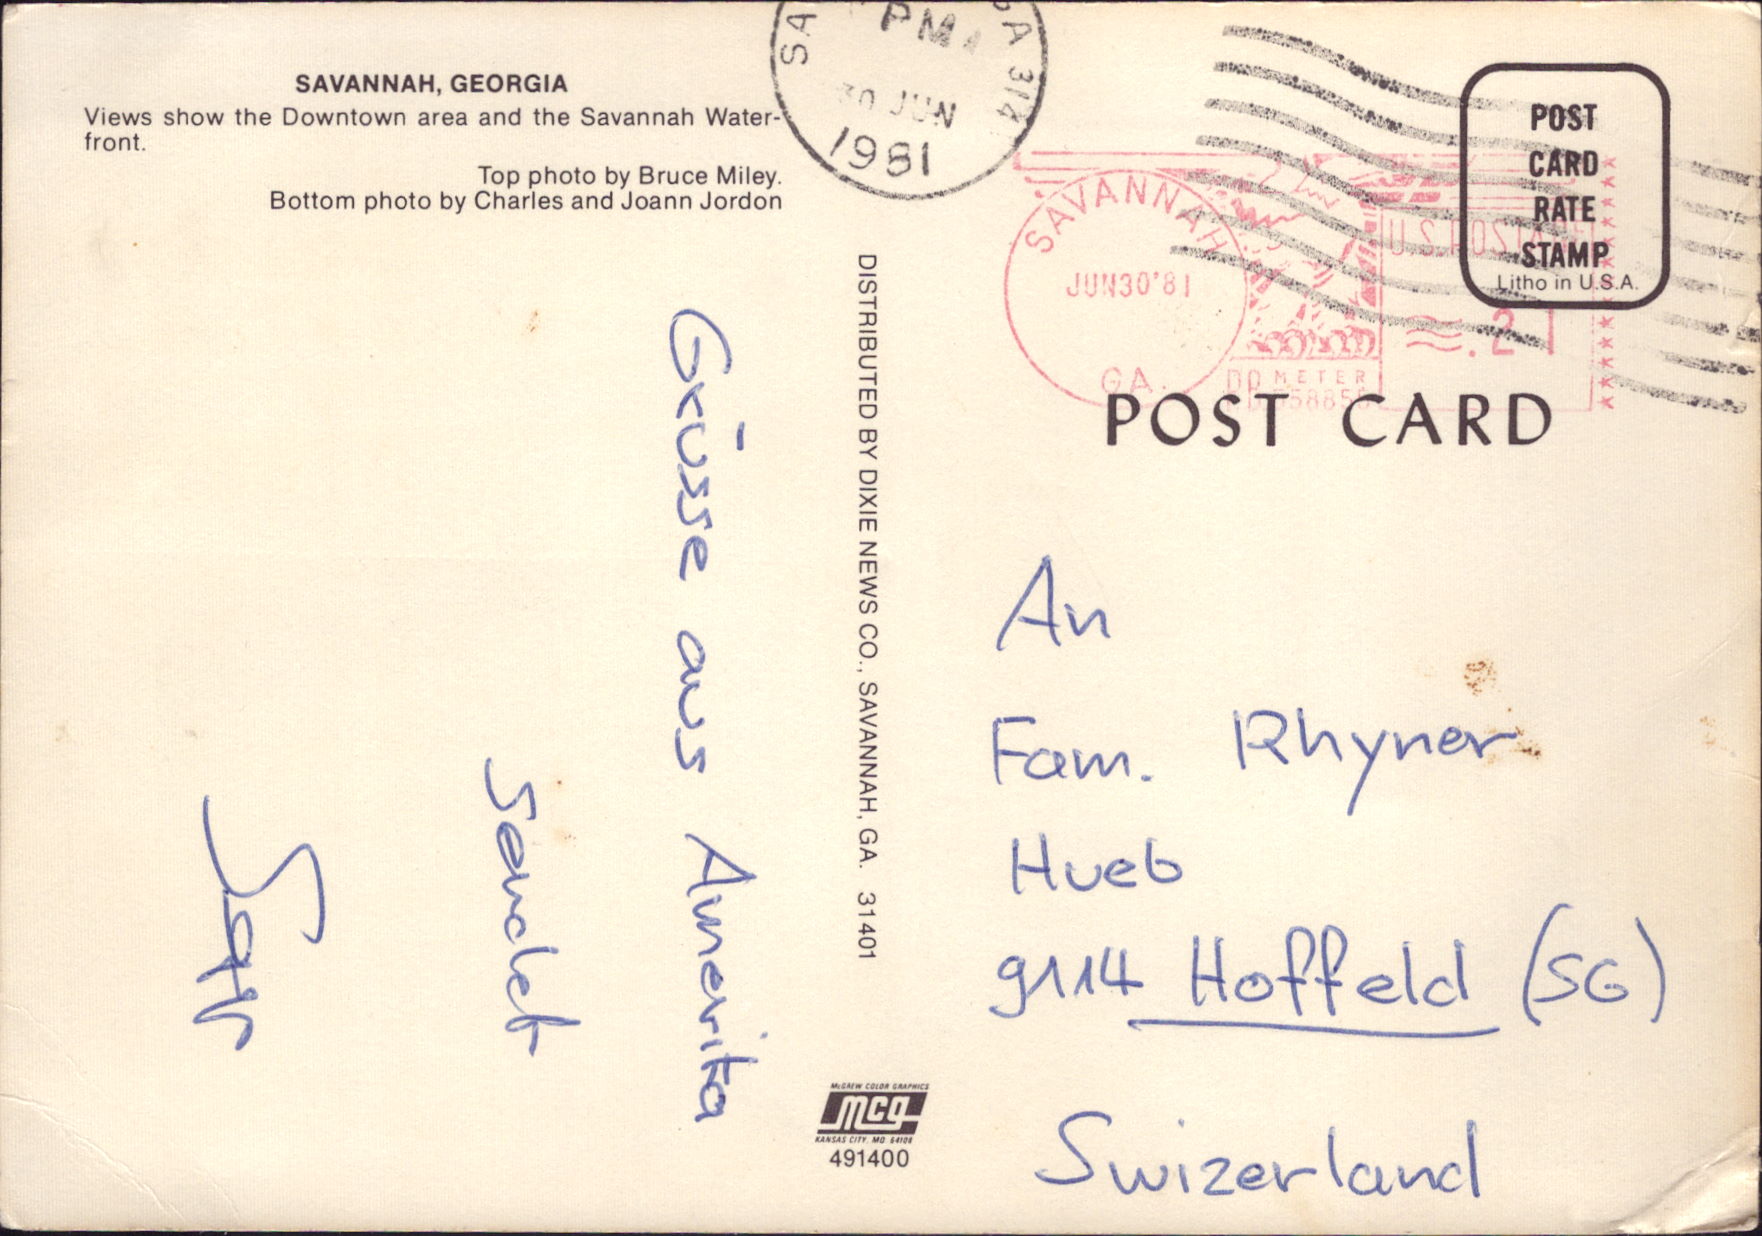 SAVANNAH, GEORGIA
Views show the Downtown area and the Savannah Water-
front.
Top photo by Bruce Miley.
Bottom photo by Charles and Joann Jordon
SA
PM
GA 314
30 JUN
1981
SAVANNAH
JUN30'81
GA.
U.S. POSTAGE
.21
METER
POST
CARD
RATE
STAMP
Litho in U.S.A.
POST CARD
DISTRIBUTED BY DIXIE NEWS CO., SAVANNAH, GA. 31401
Grüsse aus Amerika
sendet
An
Fam. Rhyner
Hueb
9114 Hoffeld (SG)
Swizerland
McGREW COLOR GRAPHICS
mcg
KANSAS CITY, MO 64108
491400